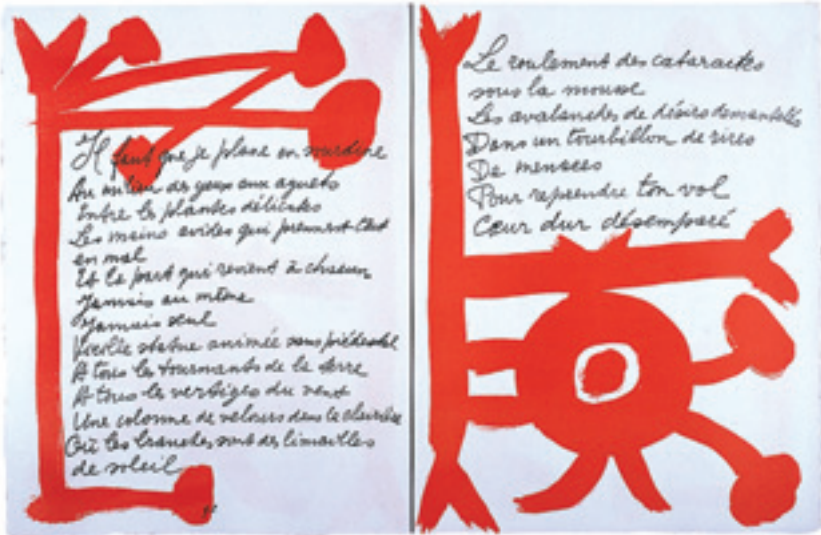 Il faut que je plane en sourdine
Au milieu des yeux aux aguets
Entre les plantes délicates
Les mains avides qui prennent tout
en mal
Et la part qui revient à chacun
Jamais au même
Jamais seul
statue animée sans piédestal
A tous les tournants de la terre
A tous les vertiges du vent
Une colonne de velours dans la clairière
Où les branches sont des limailles
de soleil
Le roulement des cataractes
sous la mousse
Les avalanches de désirs démantelés
Dans un tourbillon de rires
De menaces
Pour reprendre ton vol
Cœur dur désemparé